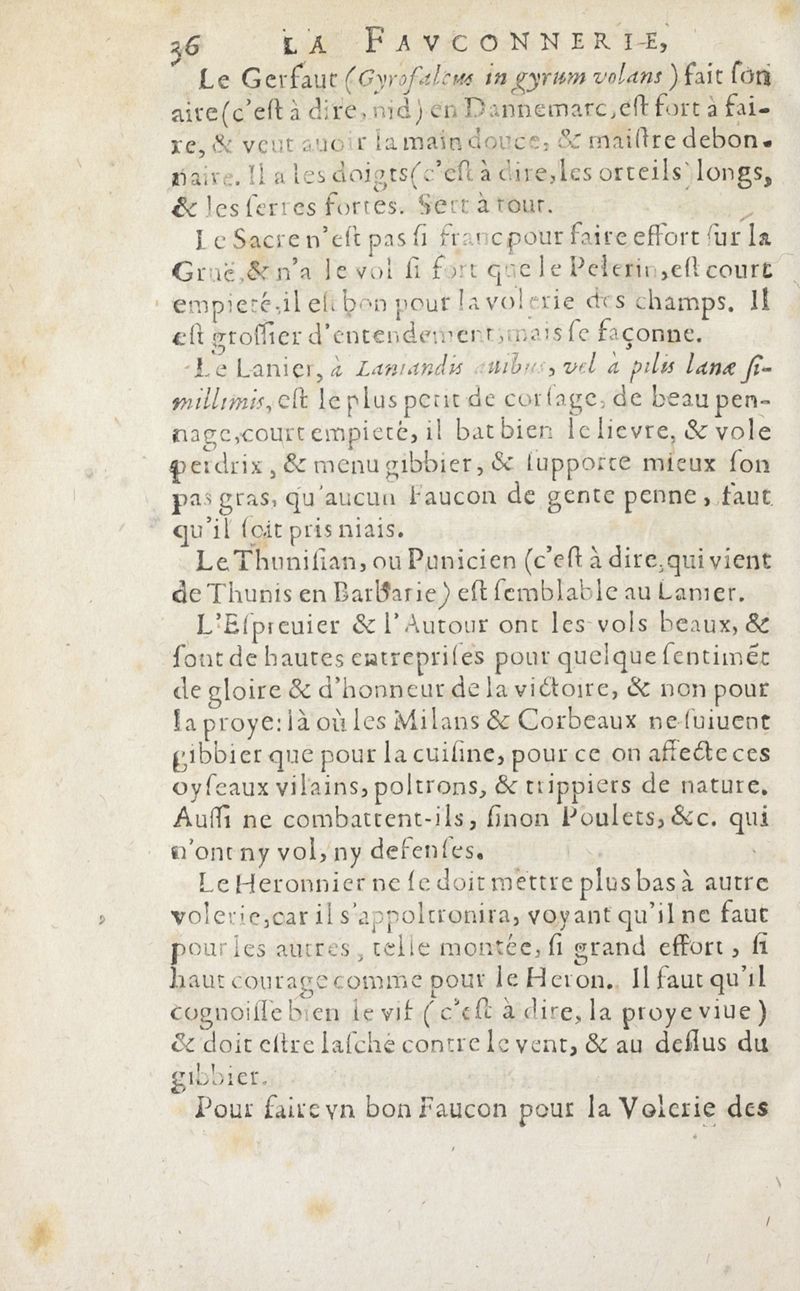 36 LA FAVCONNERIE,
Le Gerfaut (Gyrofalcus in gyrum volans) fait ſon
aire(c'eſt à dire, nid) en Dannemarc,eſt fort à fai-
re, & veut auoir la main douce, & maiſtre debon-
naire. Il a les doigts(c'eſt à dire,les orteils) longs,
& les ſerres fortes. Sert à tout.
Le Sacre n'eſt pas ſi franc pour faire effort ſur la
Gruë,& n'a le vol ſi fort que le Pelerin,eſt court
empieté,il eſt bon pour la volerie des champs. Il
eſt groſſier d'entendement,mais ſe façonne.
Le Lanier, à Laniandis auibus, vel à pilis lanæ ſi-
millimis, eſt le plus petit de corſage, de beau pen-
nage,court empieté, il bat bien le lievre, & vole
perdrix, & menu gibbier, & ſupporte mieux ſon
pas gras, qu'aucun Faucon de gente penne, faut
qu'il ſoit pris niais.
Le Thuniſian, ou Punicien (c'eſt à dire,qui vient
de Thunis en Barbarie) eſt ſemblable au Lanier.
L'Eſpreuier & l'Autour ont les vols beaux, &
font de hautes entrepriſes pour quelque ſentimẽt
de gloire & d'honneur de la victoire, & non pour
la proye: là où les Milans & Corbeaux ne ſuiuent
gibbier que pour la cuiſine, pour ce on affecte ces
oyſeaux vilains, poltrons, & trippiers de nature.
Auſſi ne combattent-ils, ſinon Poulets, &c. qui
n'ont ny vol, ny defenſes.
Le Heronnier ne ſe doit mettre plus bas à autre
volerie,car il s'appoltronira, voyant qu'il ne faut
pour les autres, telle montée, ſi grand effort, ſi
haut courage comme pour le Heron. Il faut qu'il
cognoiſſe bien le vif (c'eſt à dire, la proye viue)
& doit eſtre laſché contre le vent, & au deſſus du
gibbier.
Pour faire vn bon Faucon pour la Volerie des